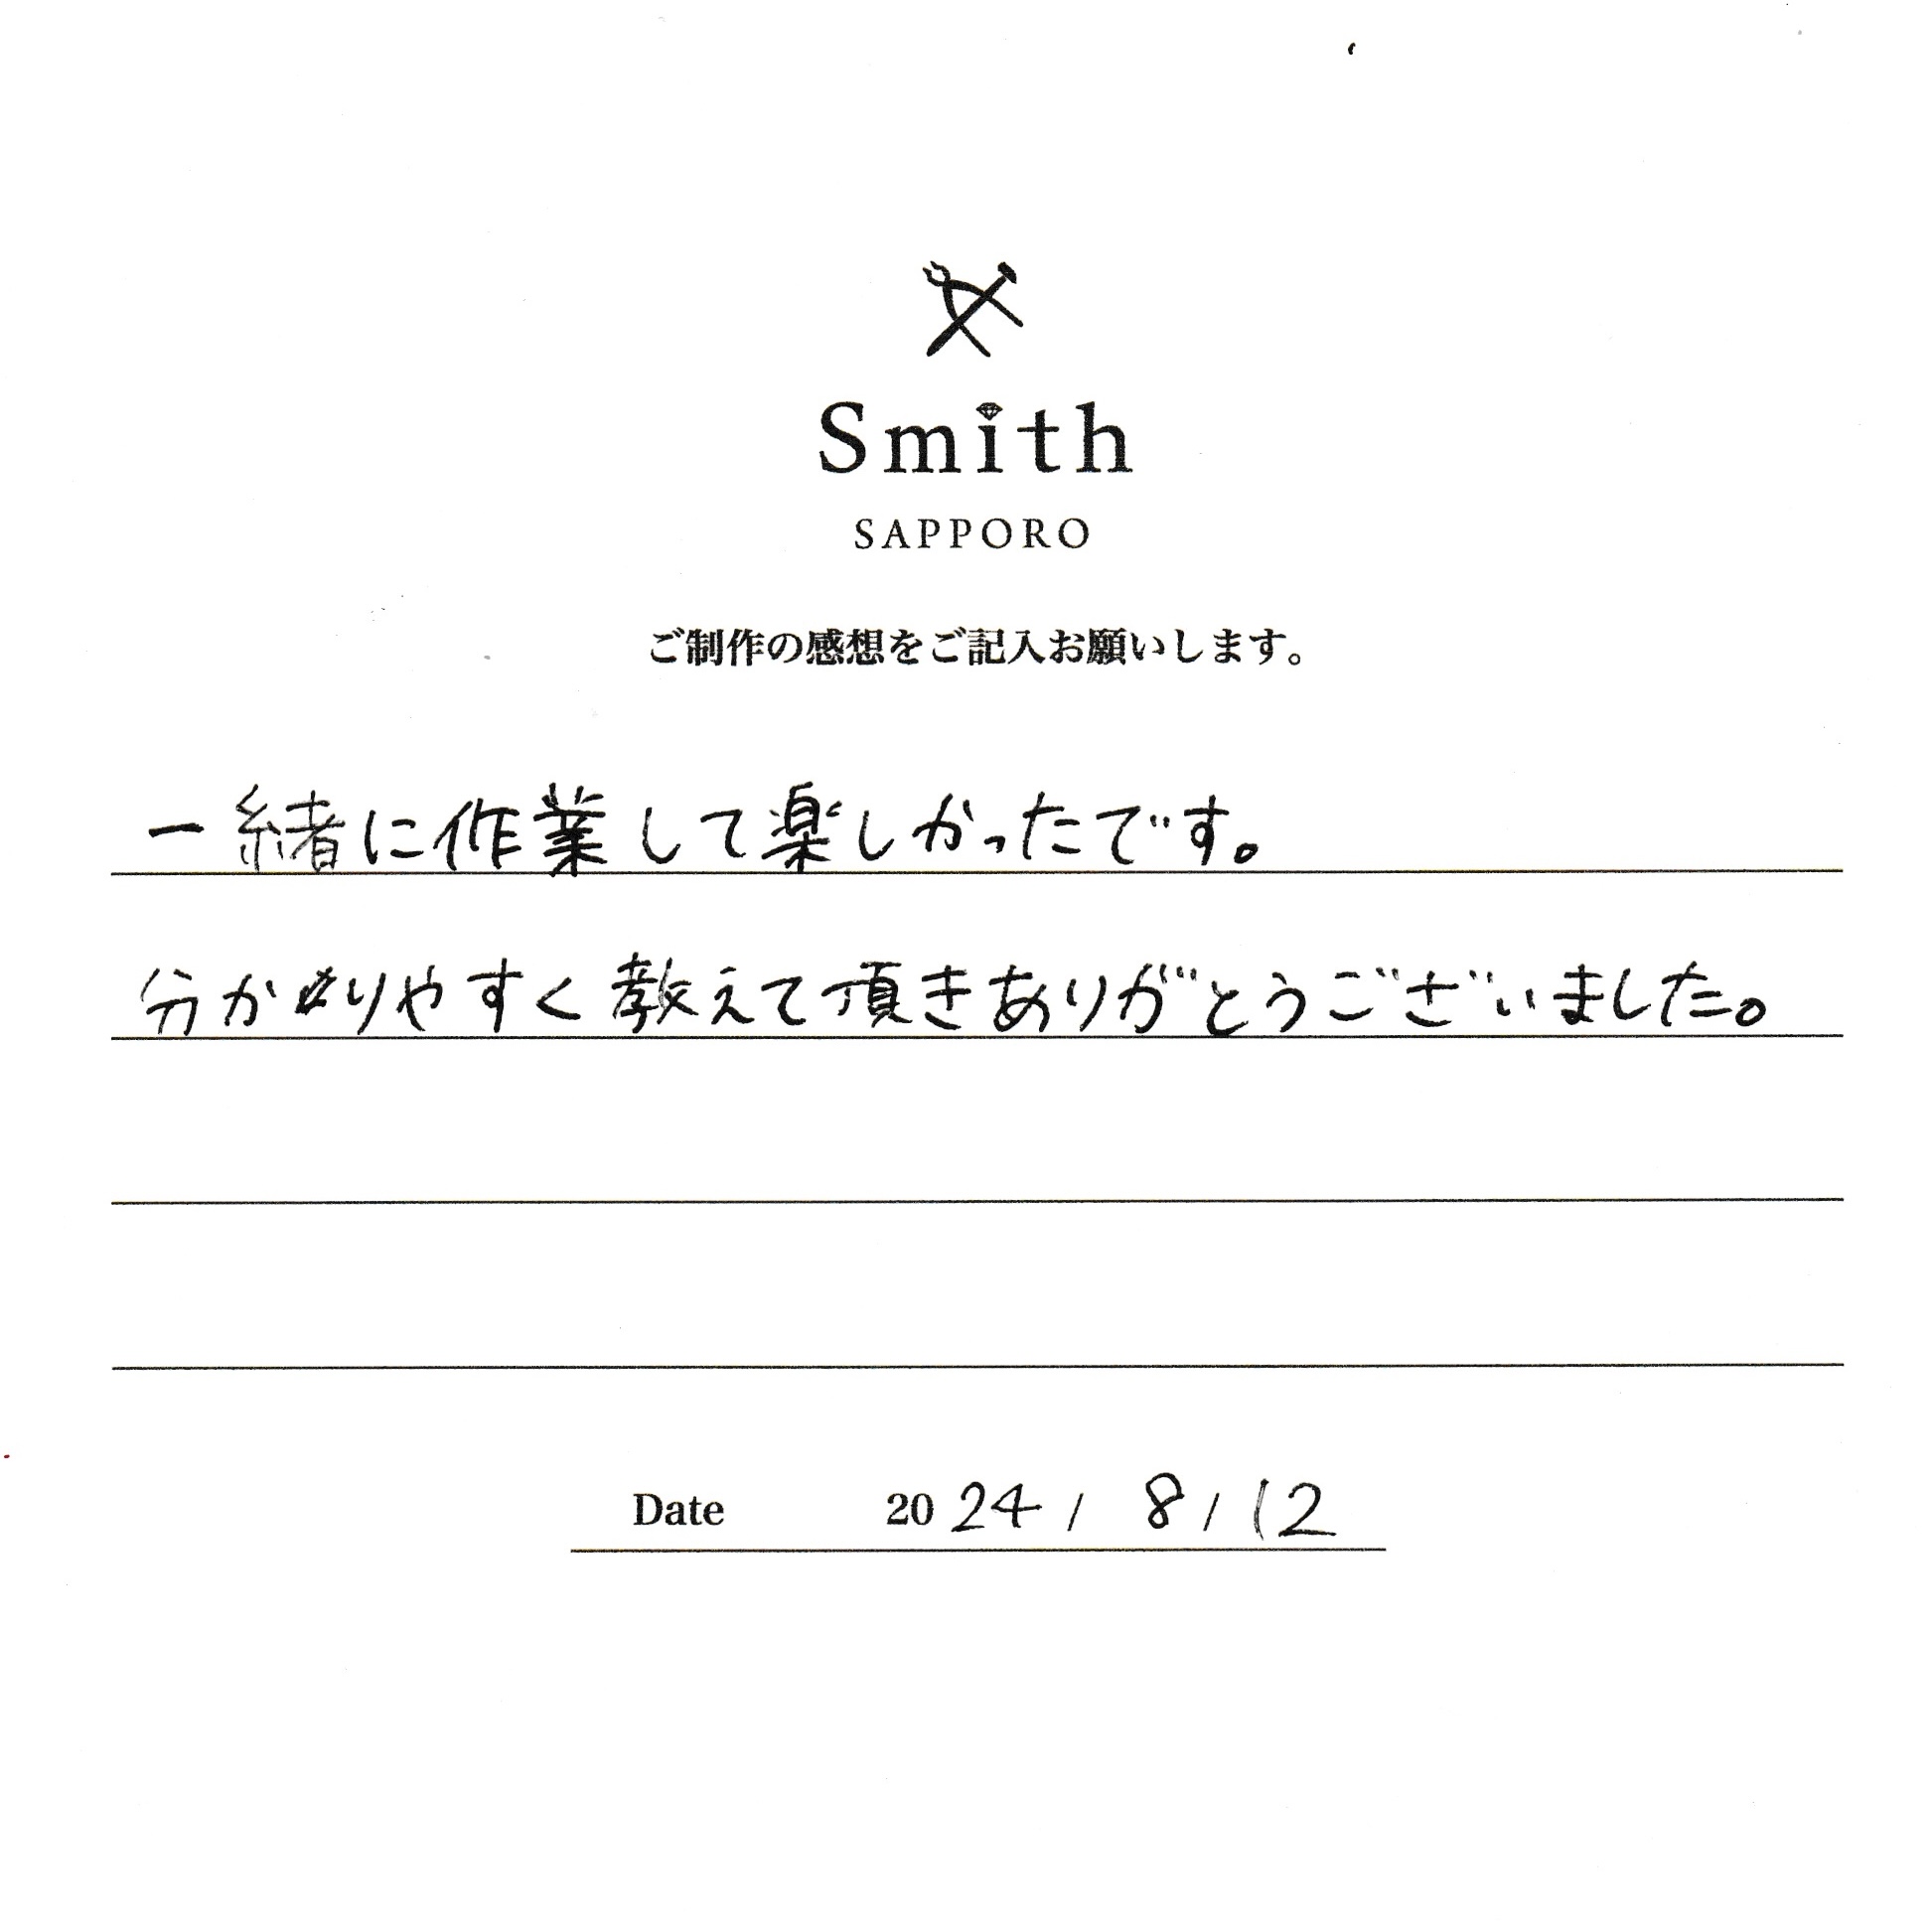 Smith
SAPPORO
ご制作の感想をご記入お願いします。
一緒に作業して楽しかったです。
分かりやすく教えて頂きありがとうございました。
Date 2024/ 8/12